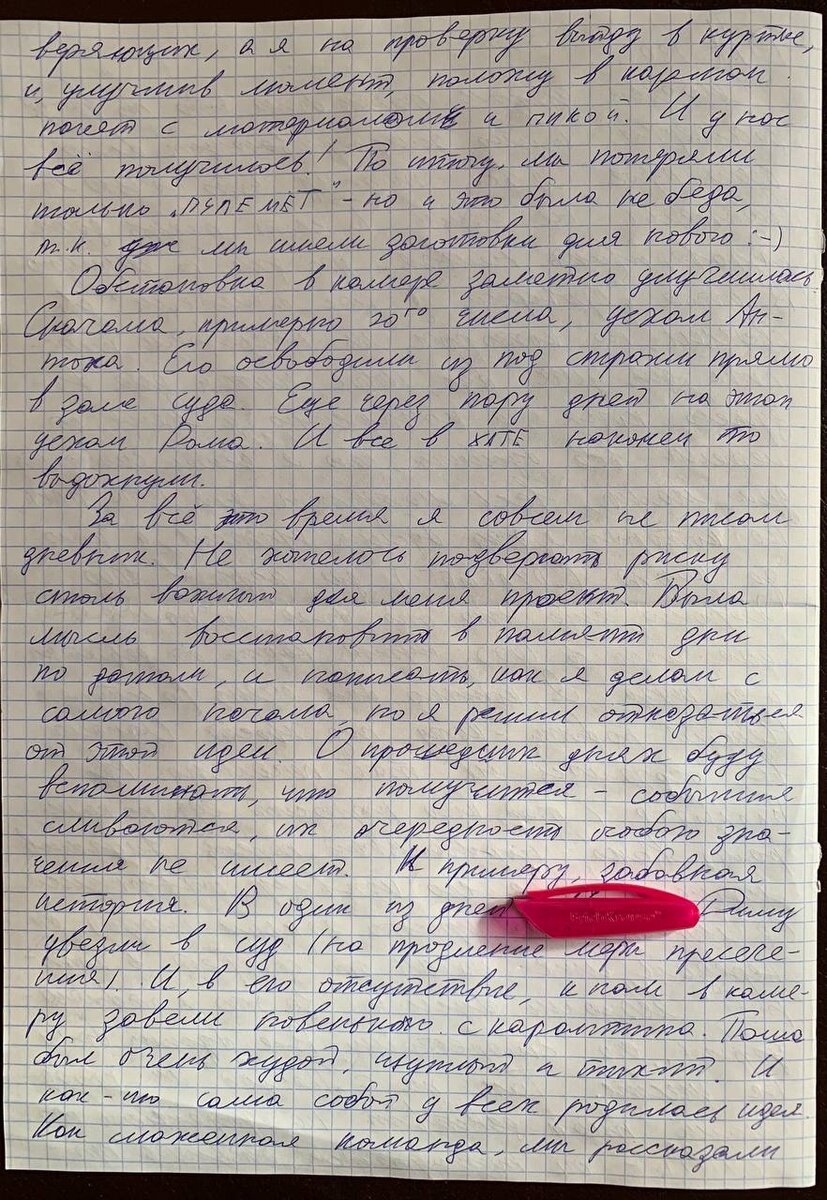 веряющих, а я на проверку выйду в куртке,
и, улучив момент, положу в карман
пакет с материалом и пикой. И у нас
всё получилось! По итогу, мы потеряли
только „ПУЛЕМЁТ" - но и это была не беда,
т.к. мы имели заготовки для нового :-)
Обстановка в камере заметно улучшилась
Сначала, примерно 20го числа, уехал Ан-
тоха. Его освободили из под стражи прямо
в зале суда. Еще через пару дней на этап
уехал Рома. И все в ХАТЕ наконец то
выдохнули.
За всё это время я совсем не писал
дневник. Не хотелось подвергать риску
столь важный для меня проект. Была
мысль восстановить в памяти дни
по датам, и написать, как я делал с
самого начала, но я решил отказаться
от этой идеи. О прошедших днях буду
вспоминать, что получится - события
сливаются, их очередность особого зна-
чения не имеет. К примеру, забавная
история. В один из дней Диму
увезли в суд (на продление меры пресече-
ния). И, в его отсутствие, к нам в каме-
ру завели новенького с карантина. Паша
был очень худой, щуплый и тихий. И
как-то сама собой у всех родилась идея.
Как слаженная команда, мы рассказали